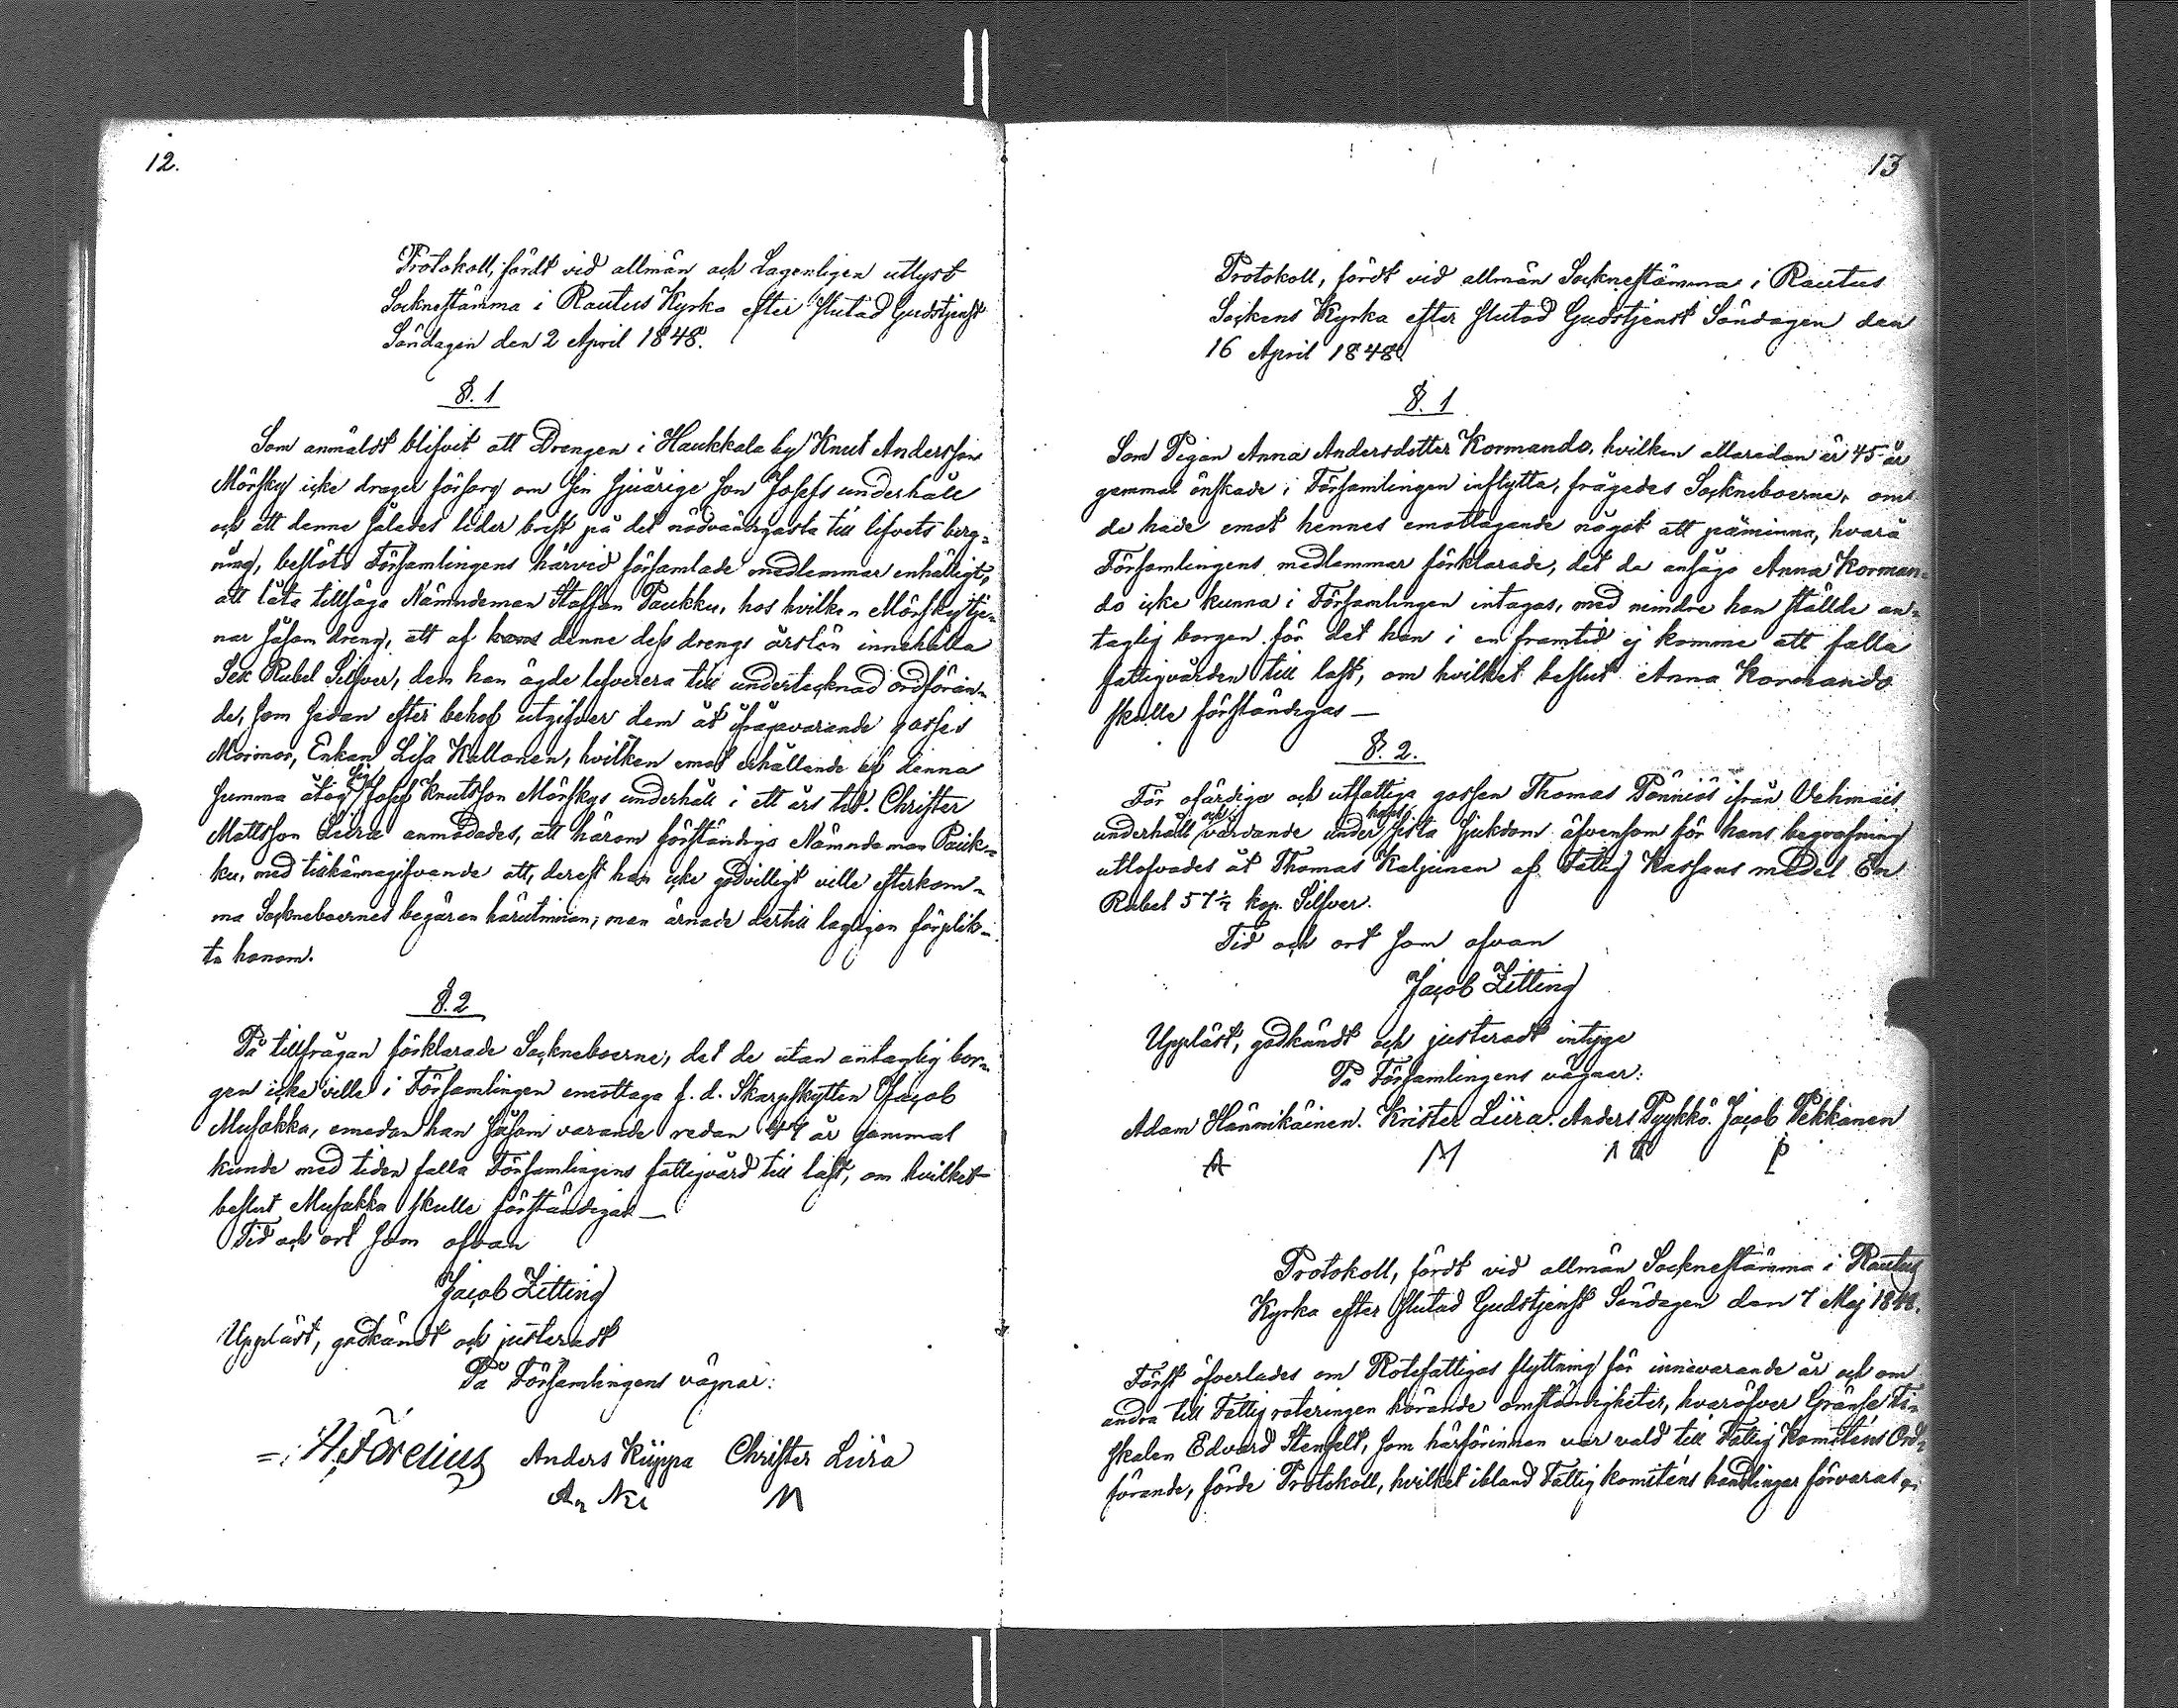 12.
Protokoll, fördt vid allmän och Lagenligen utlyst
Socknestämma i Rautus Kyrka efter slutad Gudstjenst
Söndagen den 2 April 1848.
§. 1
Som anmäldt blifvit att Drengen i Haukkala by Knut Andersson
Mörsky icke drager försorg om sin sjuårige son Josefs underhåll
och att denne således lider brist på det nödvändigaste till lifvets berg-
ning, beslöto Församlingens härvid församlade medlemmar enhälligt,
att låta tillsäga Nämndeman Staffan Paukku, hos hvilken Mörsky tje-
nar såsom dreng, att af denne dess drengs årslön innehålla
Sex Rubel Silfver, den han ägde leverera till undertecknad ordföran-
de, som sedan efter behof utgifver dem åt ifrågavarande gosses
Mormor, Enkan Lisa Kallonen, hvilken emot erhållande af denna
summa åtog sig Josef Knutsson Mörskys underhåll i ett års tid. Christer
Mattsson Liira anmodades, att härom förständiga Nämndeman Pauk-
ku, med tillkännagifvande att, derest han icke godvilligt ville efterkom-
ma Sockneboernes begäran härutinnan; man ärnade dertill lagligen förplik-
ta honom.
§. 2
På tillfrågan förklarade Sockneboerne, det de utan antaglig bor-
gen icke ville i Församlingen emottaga f. d. Skarpskytten Jacob
Musakka, emedan han såsom varande redan 44 år gammal
kunde med tiden falla Församlingens fattigvård till last, om hvilket
beslut Musakka skulle förständigas —
Tid och ort som ofvan
Jacob Zitting
Uppläst, godkändt och justeradt
På Församlingens vägnar:
H. Forelius Anders Kiippa Christer Liira
M
13
Protokoll, fördt vid allmän Socknestämma i Rautus
Sockens Kyrka efter slutad Gudstjenst Söndagen den
16 April 1848.
§. 1
Som Pigan Anna Andersdotter Kormando, hvilken allaredan är 45 år
gammal önskade i Församlingen inflytta, frågades Sockneboerne, om
de hade emot hennes emottagande något att påminna, hvarå
Församlingens medlemmar förklarade, det de ansågo Anna Korman-
do icke kunna i Församlingen intagas, med mindre hon ställde an-
taglig borgen för det hon i en framtid ej komme att falla
fattigvården till last, om hvilket beslut Anna Kormando
skulle förständigas —
§. 2.
För ofärdige och utfattige gossen Thomas Pönniös ifrån Vehmais
underhåll och vårdande under hans sista sjukdom äfvensom för hans begrafning
utlofvades åt Thomas Kaljunen af Fattig Kassans medel En
Rubel 57 1/7 kop. Silfver.
Tid och ort som ofvan
Jacob Zitting
Uppläst, godkändt och justeradt intyga
På Församlingens vägnar:
Adam Hännikäinen. Krister Liira. Anders Pyykkö. Jacob Pekkanen
A M P
Protokoll, fördt vid allmän Sockneståmma i Rautus
Kyrka efter slutad Gudstjenst Söndagen den 7 Maj 1848.
Först öfverlades om Rotefattigas flyttning för innevarande år och om
andra till Fattigroteringen hörande omständigheter, hvaröfver Gränse Fi-
skalen Edvard Stenfelt, som härförinnan var vald till Fattig Komiténs Ord-
förande, förde Protokoll, hvilket ibland Fattig komiténs handlingar förvaras